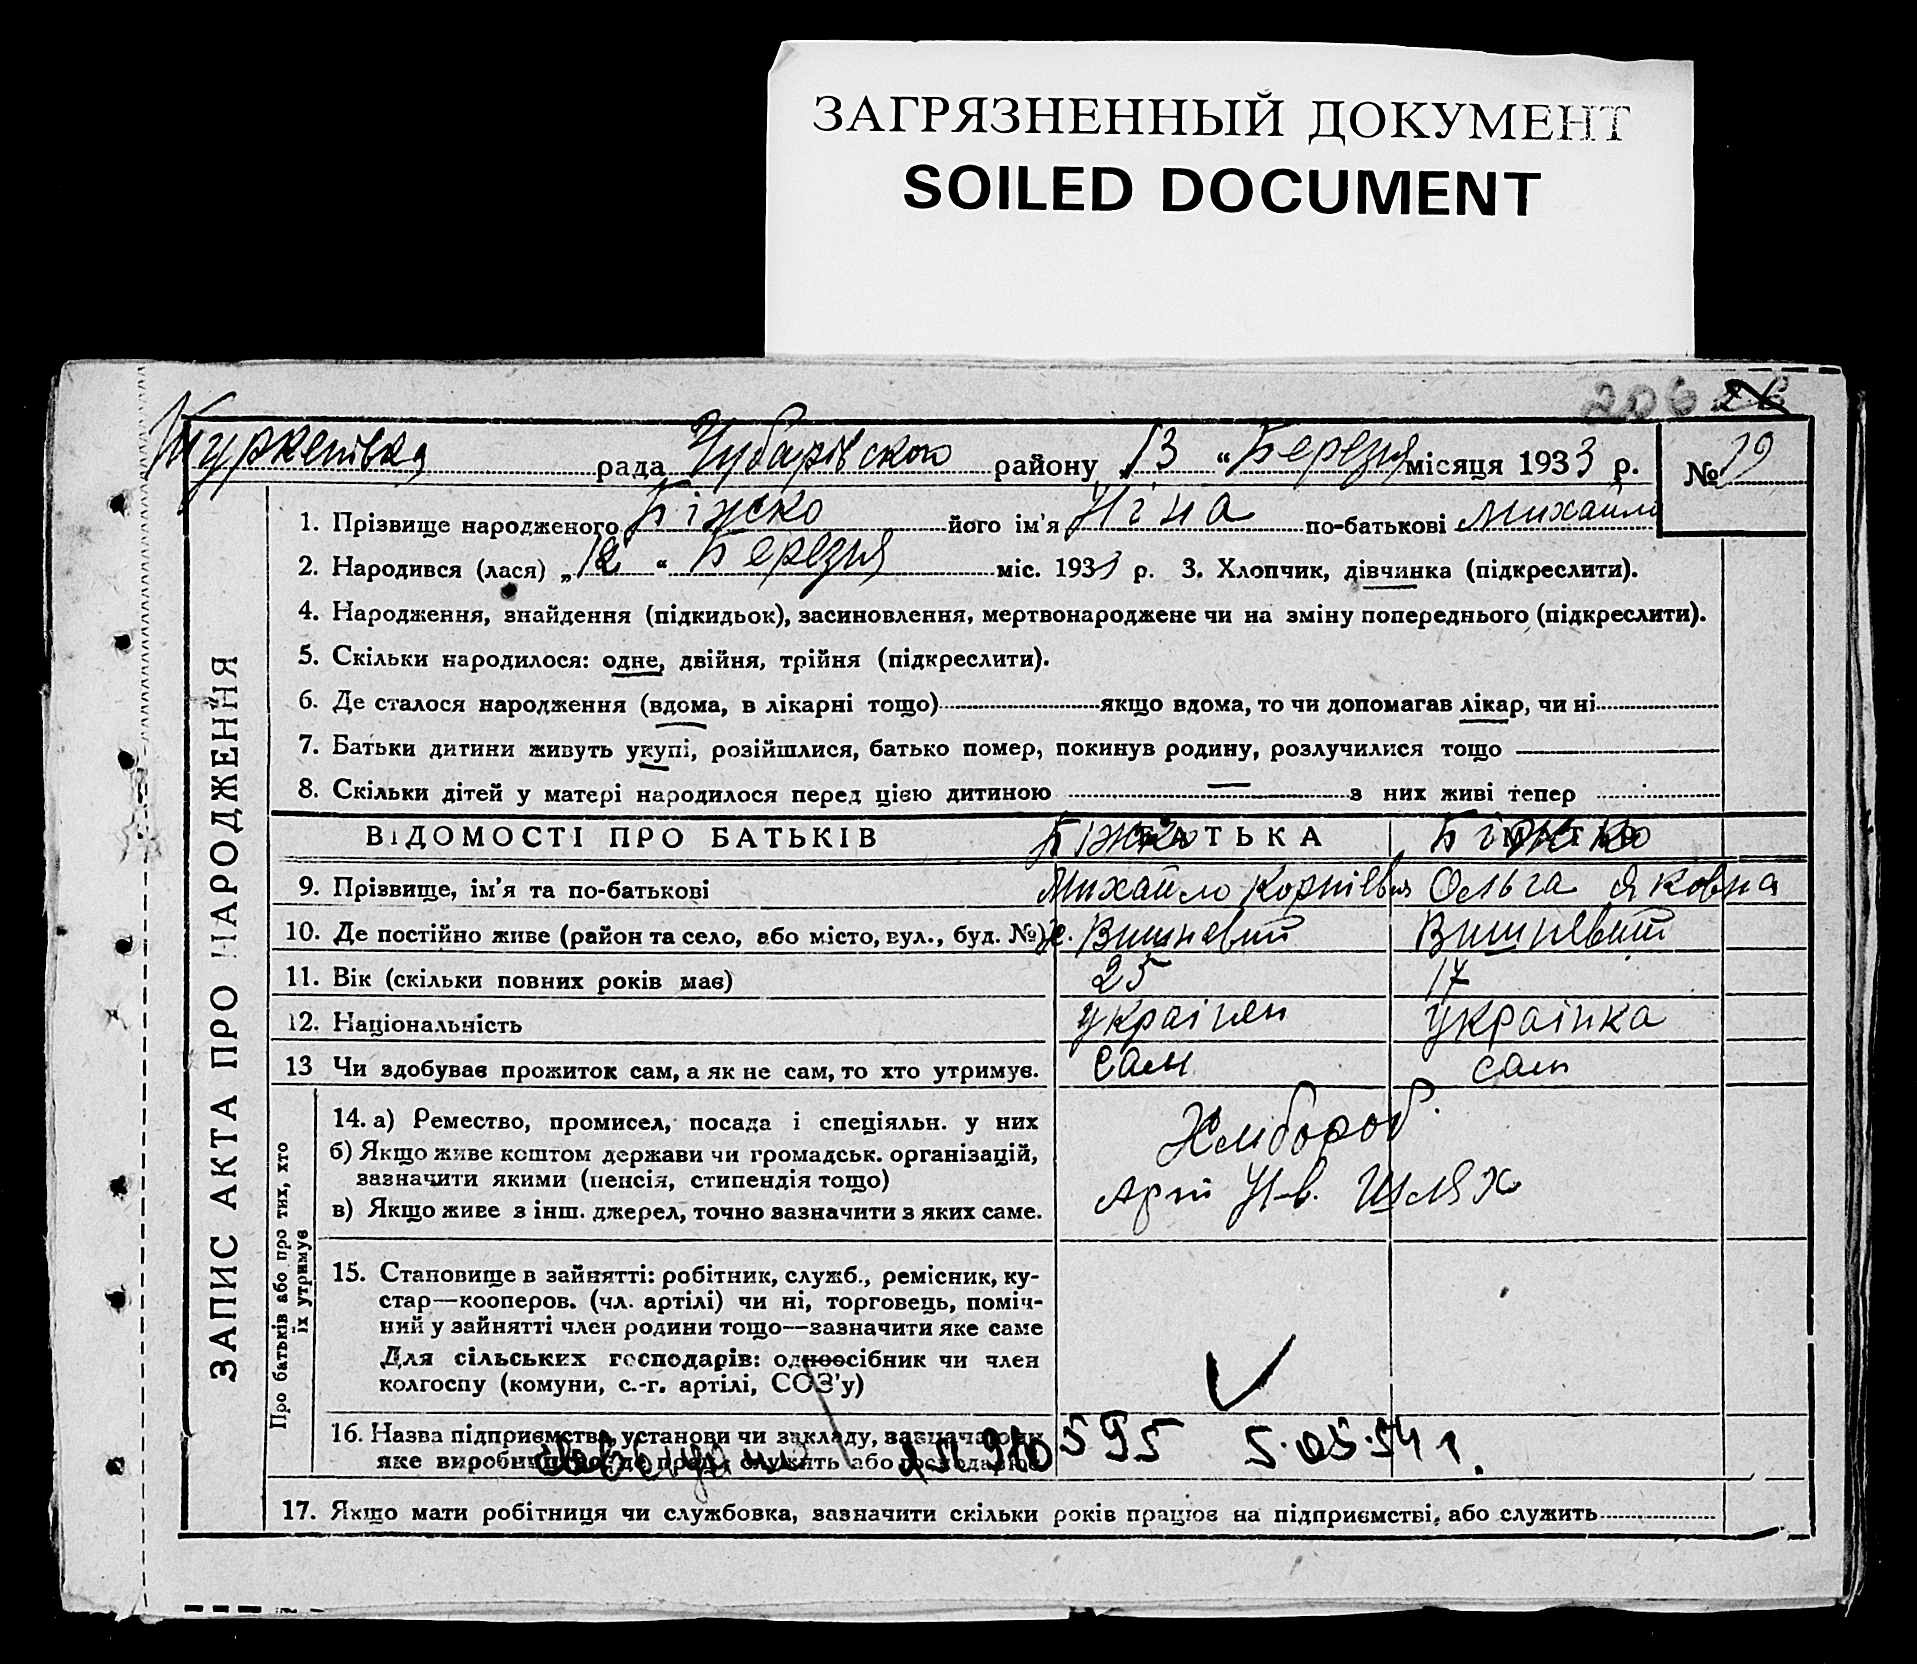 ЗАГРЯЗНЕННЫЙ ДОКУМЕНТ
SOILED DOCUMENT
206
Туркенівка рада Чубарівского району 13 “ Березня місяця 1933 р. № 19
1. Прізвище народженого Біжко його ім’я Ніна по-батькові Михайл
2. Народився (лася) „ 12 “ Березня міс. 1933 р. 3. Хлопчик, дівчинка (підкреслити).
4. Народження, знайдення (підкидьок), засиновлення, мертвонароджене чи на зміну попереднього (підкреслити).
5. Скільки народилося: одне, двійня, трійня (підкреслити).
6. Де сталося народження (вдома, в лікарні тощо) якщо вдома, то чи допомагав лікар, чи ні
7. Батьки дитини живуть укупі, розійшлися, батько помер, покинув родину, розлучилися тощо
8. Скільки дітей у матері народилося перед цією дитиною — з них живі тепер
ВІДОМОСТІ ПРО БАТЬКІВ БАТЬКА МАТІР
Біжко Біжко
9. Прізвище, ім’я та по-батькові Михайло Корнієв Ольга Яковна
10. Де постійно живе (район та село, або місто, вул., буд. №) х. Вишневий Вишневий
11. Вік (скільки повних років має) 25 17
12. Національність українец українка
13 Чи здобував прожиток сам, а як не сам, то хто утримує. сам сам
14. а) Ремество, промисел, посада і спеціяльн. у них Хлібороб
б) Якщо живе коштом держави чи громадськ. організацій,
зазначити якими (пенсія, стипендія тощо) Арт Н-в. Шлях
в) Якщо живе з інш. джерел, точно зазначити з яких саме.
15. Становище в зайнятті: робітник, служб., ремісник, ку-
стар—кооперов. (чл. артілі) чи ні, торговець, поміч-
ний у зайнятті член родини тощо—зазначити яке саме
Для сільських господарів: одноосібник чи член
колгоспу (комуни, с.-г. артілі, СОЗ’у)
16. Назва підприємства, установи чи закладу, зазначаючи
яке виробництво, де працює служить або господарює
595 5.05.54 г.
17. Якщо мати робітниця чи службовка, зазначити скільки років працює на підприємстві, або служить
ЗАПИС АКТА ПРО НАРОДЖЕННЯ
Про батьків або про тих, хто
їх утримує